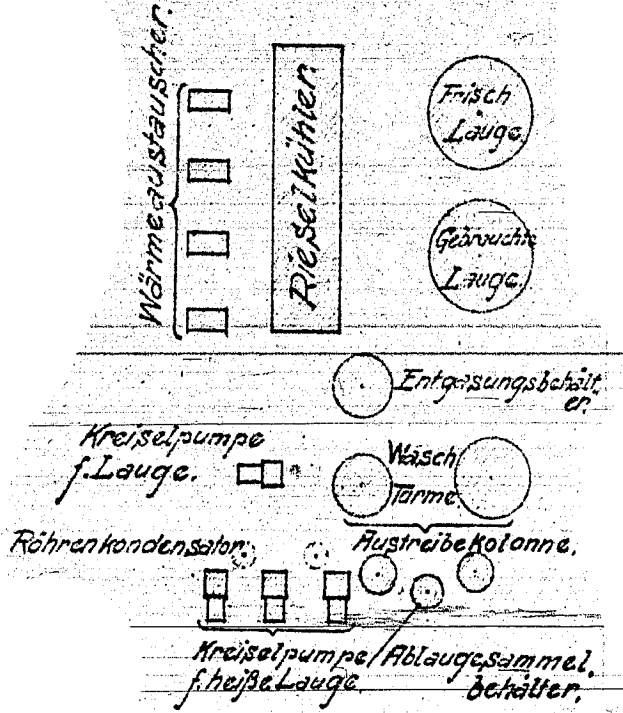 Wärmeaustauscher.
Rieselkühler
Frisch
Lauge.
Gebrauchte
Lauge.
Entgasungsbehält.
er.
Kreiselpumpe
f. Lauge.
Wasch
Türme.
Röhrenkondensator.
Austreibekolonne.
Kreiselpumpe
f. heiße Lauge.
Ablaugesammel.
behälter.